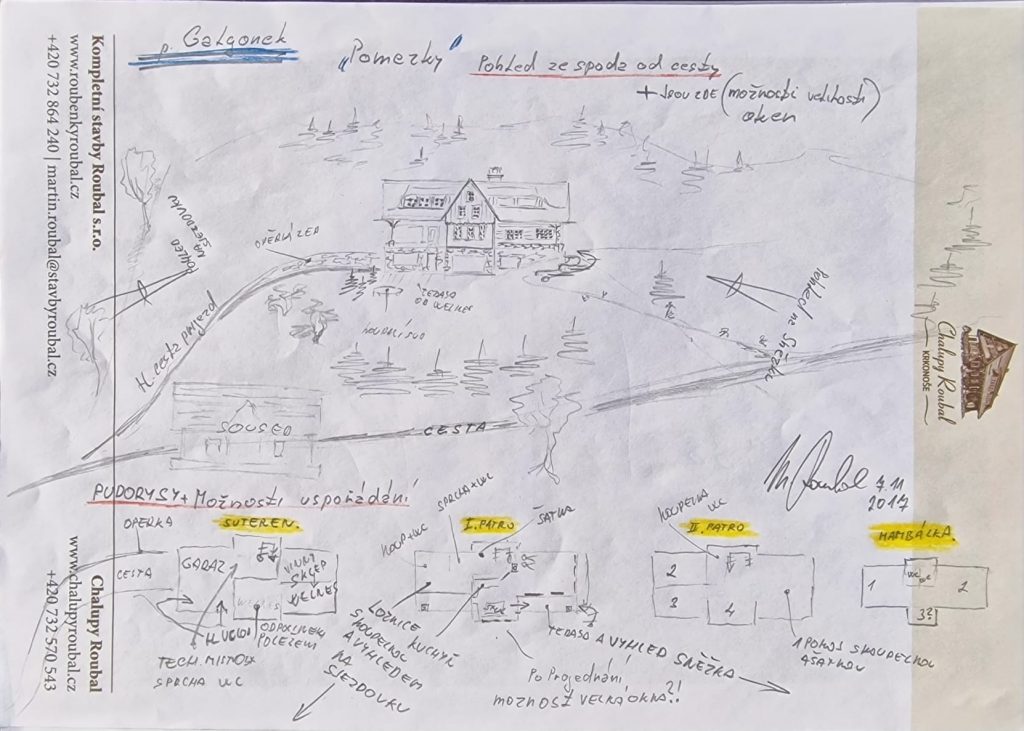 p. Galgonek
"Pomezky"
Pohled ze spoda od cesty
+ JSOU ZDE (možnosti velikosti
oken)
Kompletní stavby Roubal s.r.o.
www.roubenkyroubal.cz
+420 732 864 240 | martin.roubal@stavbyroubal.cz
POHLED
NA
OPĚRNÁ ZEĎ
H. cesta
TERASA
OD WELNES
KOUPACÍ SUD
Pohled na Sněžku
SOUSED
CESTA
Chalupy Roubal
KRKONOŠE
7.11
2017
PŮDORYSY + Možnosti uspořádání
OPĚRKA
CESTA
SUTEREN.
GARÁŽ
VINNÝ
SKLEP
WELNES
WELNES
H. VCHOD
ODPOČINEK
POLEŽENÍ
TECH. MISTNOST
SPRCHA WC
I. PATRO
KOUP+WC
SPRCHA+WC
ŠATNA
LOŽNICE
KOUPELNOU
A VÝHLEDEM
NA
SJEZDOVKU
KUCHYŇ
TERASA A VÝHLED SNĚŽKA
Po Projednání
MOŽNOST VELKÁ OKNA?!
II. PATRO
KOUPELNA
WC
2
3
4
1 POKOJ S KOUPELNOU
A ŠATNOU
HAMBÁLKA.
1
WC
2
3?
Chalupy Roubal
www.chalupyroubal.cz
+420 732 570 543